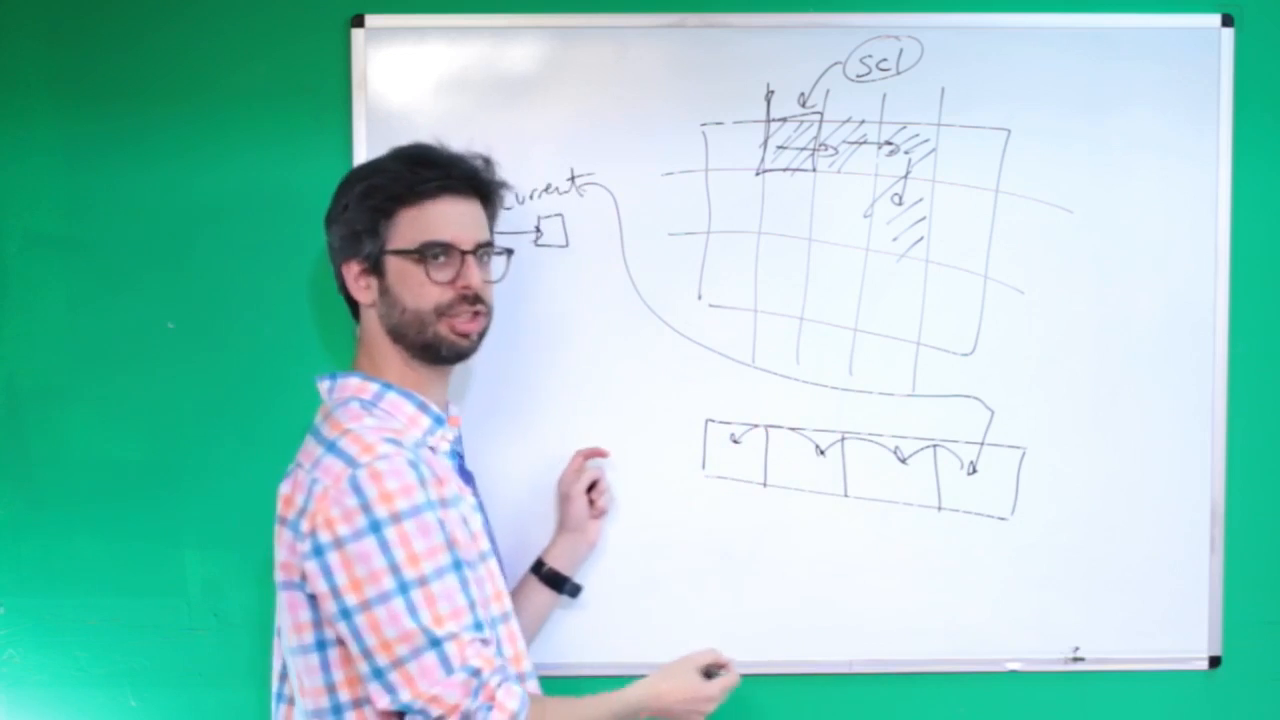 scl
current